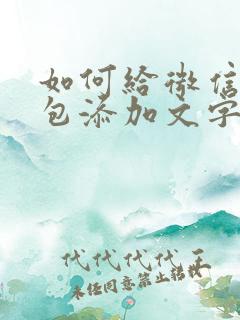 如何给微信
包添加文字
代代代代王
未经同意禁止转载